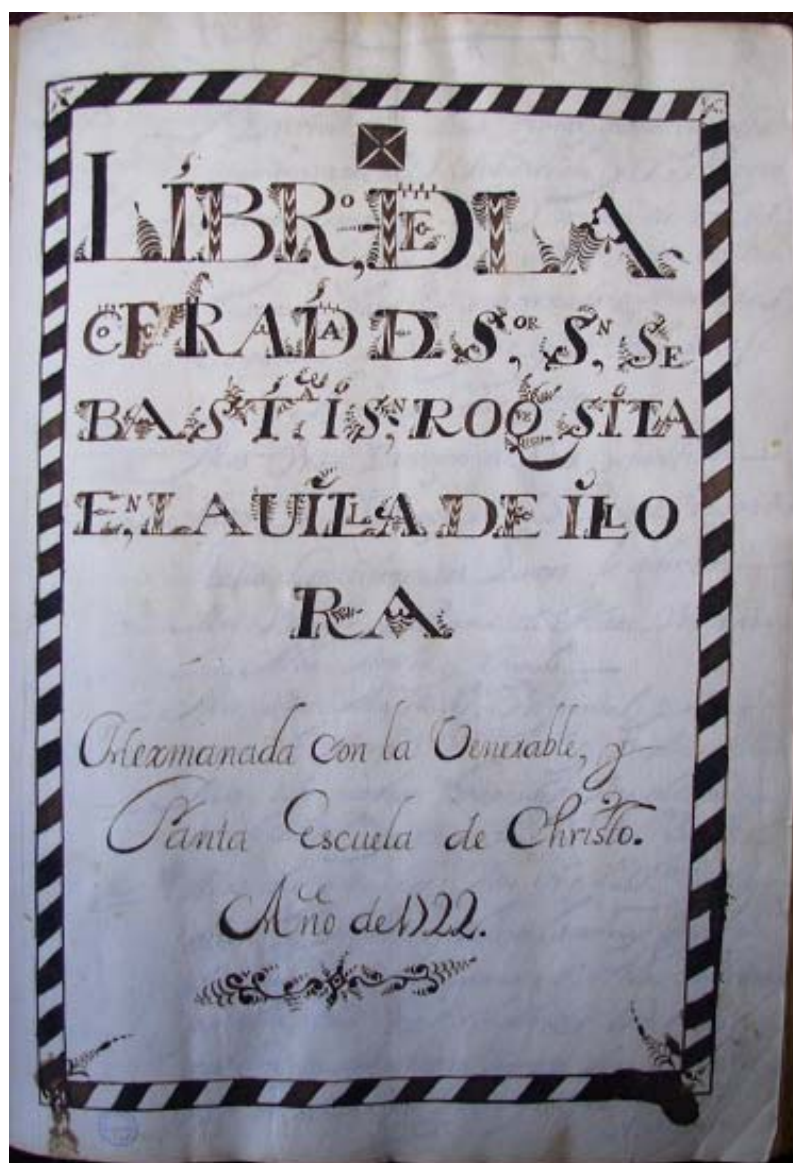 LIBRO, DE LA
COFRADIA DE S.OR, S.N, SE
BASTIAN, I S.N, ROQVE SITA
EN, LA UILLA DE ILLO
RA
Hermanada con la Venerable, y
Santa Escuela de Christo.
Año de 1722.